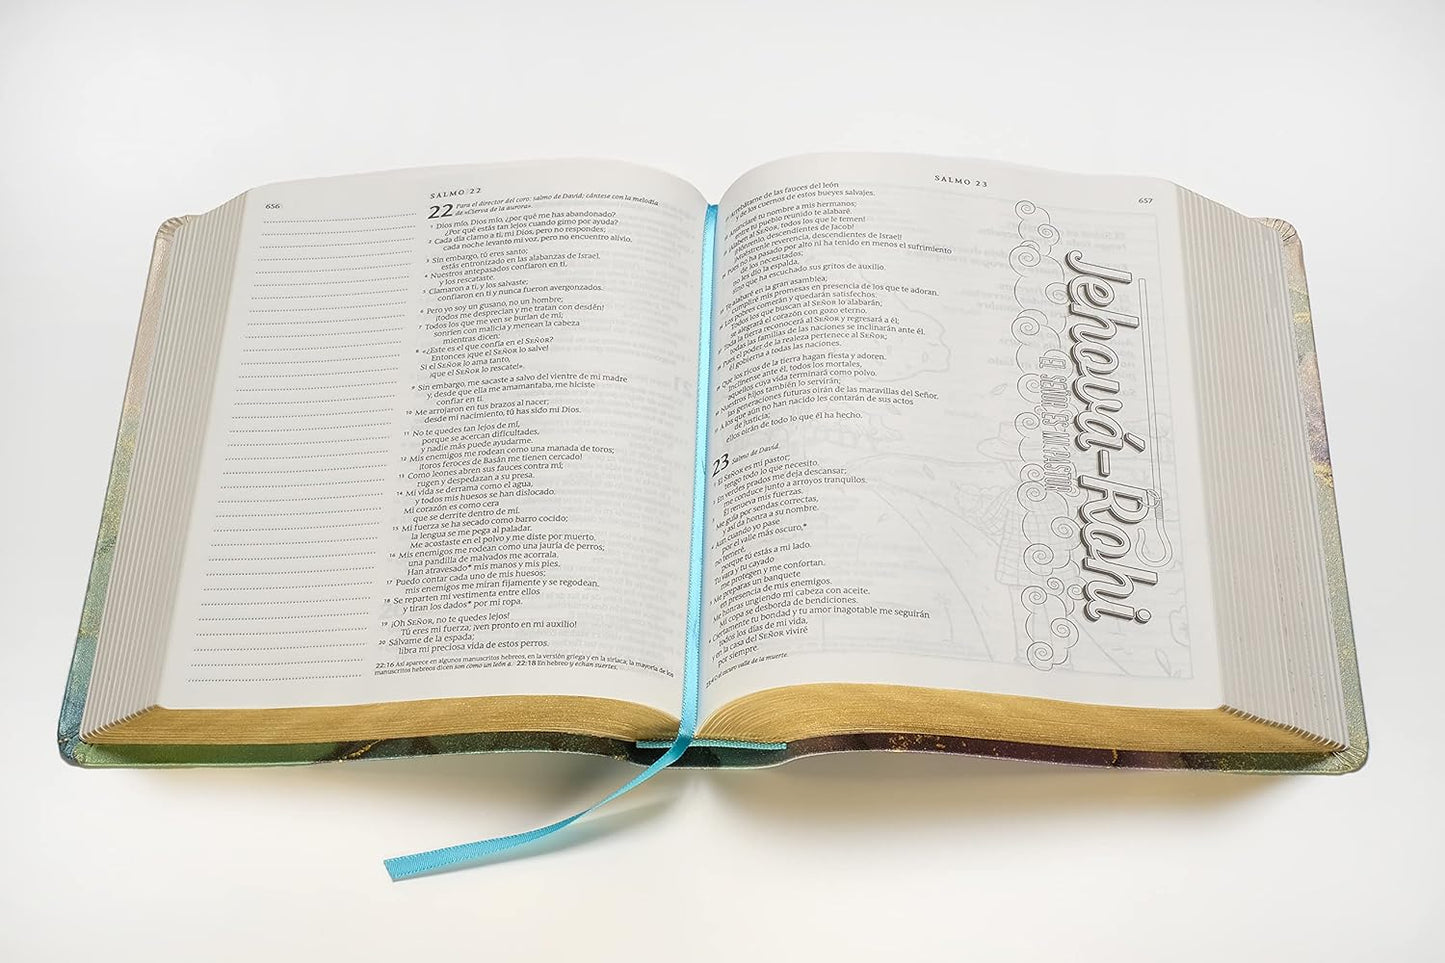 656
SALMO 22
22 Para el director del coro: salmo de David; cántese con la melodía
de «Cierva de la aurora».
1 Dios mío, Dios mío, ¿por qué me has abandonado?
¿Por qué estás tan lejos cuando gimo por ayuda?
2 Cada día clamo a ti, mi Dios, pero no respondes;
cada noche levanto mi voz, pero no encuentro alivio.
3 Sin embargo, tú eres santo;
estás entronizado en las alabanzas de Israel.
4 Nuestros antepasados confiaron en ti,
y los rescataste.
5 Clamaron a ti, y los salvaste;
confiaron en ti y nunca fueron avergonzados.
6 Pero yo soy un gusano, no un hombre;
¡todos me desprecian y me tratan con desdén!
7 Todos los que me ven se burlan de mí;
sonríen con malicia y menean la cabeza
mientras dicen:
8 «¿Este es el que confía en el SEÑOR?
Entonces ¡que el SEÑOR lo salve!
Si el SEÑOR lo ama tanto,
¡que el SEÑOR lo rescate!».
9 Sin embargo, me sacaste a salvo del vientre de mi madre
y, desde que ella me amamantaba, me hiciste
confiar en ti.
10 Me arrojaron en tus brazos al nacer;
desde mi nacimiento, tú has sido mi Dios.
11 No te quedes tan lejos de mí,
porque se acercan dificultades,
y nadie más puede ayudarme.
12 Mis enemigos me rodean como una manada de toros;
¡toros feroces de Basán me tienen cercado!
13 Como leones abren sus fauces contra mí;
rugen y despedazan a su presa.
14 Mi vida se derrama como el agua,
y todos mis huesos se han dislocado.
Mi corazón es como cera
que se derrite dentro de mí.
15 Mi fuerza se ha secado como barro cocido;
la lengua se me pega al paladar.
Me acostaste en el polvo y me diste por muerto.
16 Mis enemigos me rodean como una jauría de perros;
una pandilla de malvados me acorrala.
Han atravesado* mis manos y mis pies.
17 Puedo contar cada uno de mis huesos;
mis enemigos me miran fijamente y se regodean.
18 Se reparten mi vestimenta entre ellos
y tiran los dados* por mi ropa.
19 ¡Oh SEÑOR, no te quedes lejos!
Tú eres mi fuerza, ¡ven pronto en mi auxilio!
20 Sálvame de la espada;
libra mi preciosa vida de estos perros.
22:16 Así aparece en algunos manuscritos hebreos, en la versión griega y en la siríaca; la mayoría de los
manuscritos hebreos dicen son como un león a. 22:18 En hebreo y echan suertes.
SALMO 23
657
Arrebátame de las fauces del león
y de los cuernos de estos bueyes salvajes.
Anunciaré tu nombre a mis hermanos;
entre tu pueblo reunido te alabaré.
¡Alaben al SEÑOR, todos los que le temen!
¡Hónrenlo, descendientes de Jacob!
¡Muéstrenle reverencia, descendientes de Israel!
Pues no ha pasado por alto ni ha tenido en menos el sufrimiento
de los necesitados;
no les dio la espalda,
sino que ha escuchado sus gritos de auxilio.
Te alabaré en la gran asamblea;
cumpliré mis promesas en presencia de los que te adoran.
Los pobres comerán y quedarán satisfechos;
Todos los que buscan al SEÑOR lo alabarán;
se alegrará el corazón con gozo eterno.
Toda la tierra reconocerá al SEÑOR y regresará a él;
todas las familias de las naciones se inclinarán ante él.
Pues el poder de la realeza pertenece al SEÑOR;
él gobierna a todas las naciones.
Que los ricos de la tierra hagan fiesta y adoren.
Inclínense ante él, todos los mortales,
aquellos cuya vida terminará como polvo.
Nuestros hijos también lo servirán;
las generaciones futuras oirán de las maravillas del Señor.
A los que aún no han nacido les contarán de sus actos
de justicia;
ellos oirán de todo lo que él ha hecho.
23 Salmo de David.
El SEÑOR es mi pastor;
tengo todo lo que necesito.
En verdes prados me deja descansar;
me conduce junto a arroyos tranquilos.
Él renueva mis fuerzas.
Me guía por sendas correctas,
y así da honra a su nombre.
Aun cuando yo pase
por el valle más oscuro,*
no temeré,
porque tú estás a mi lado.
Tu vara y tu cayado
me protegen y me confortan.
Me preparas un banquete
en presencia de mis enemigos.
Me honras ungiendo mi cabeza con aceite.
Mi copa se desborda de bendiciones.
Ciertamente tu bondad y tu amor inagotable me seguirán
todos los días de mi vida,
y en la casa del SEÑOR viviré
por siempre.
23:4 O el oscuro valle de la muerte.
Jehová-Rohi
EL SEÑOR ES MI PASTOR